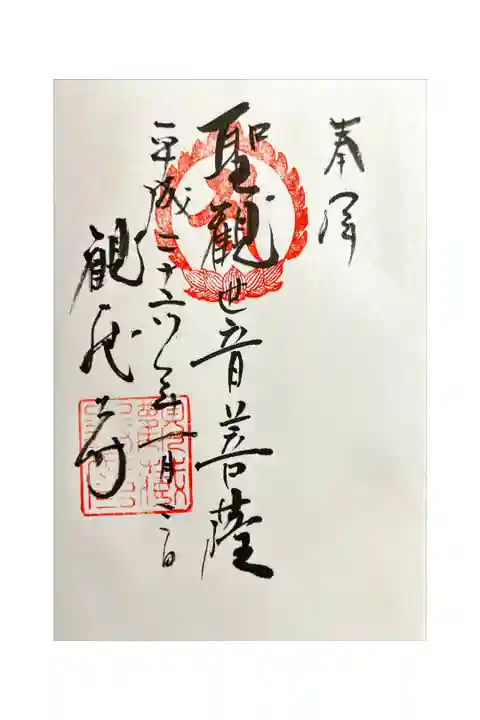 奉拝
聖観世音菩薩
平成二十六年一月三日
観